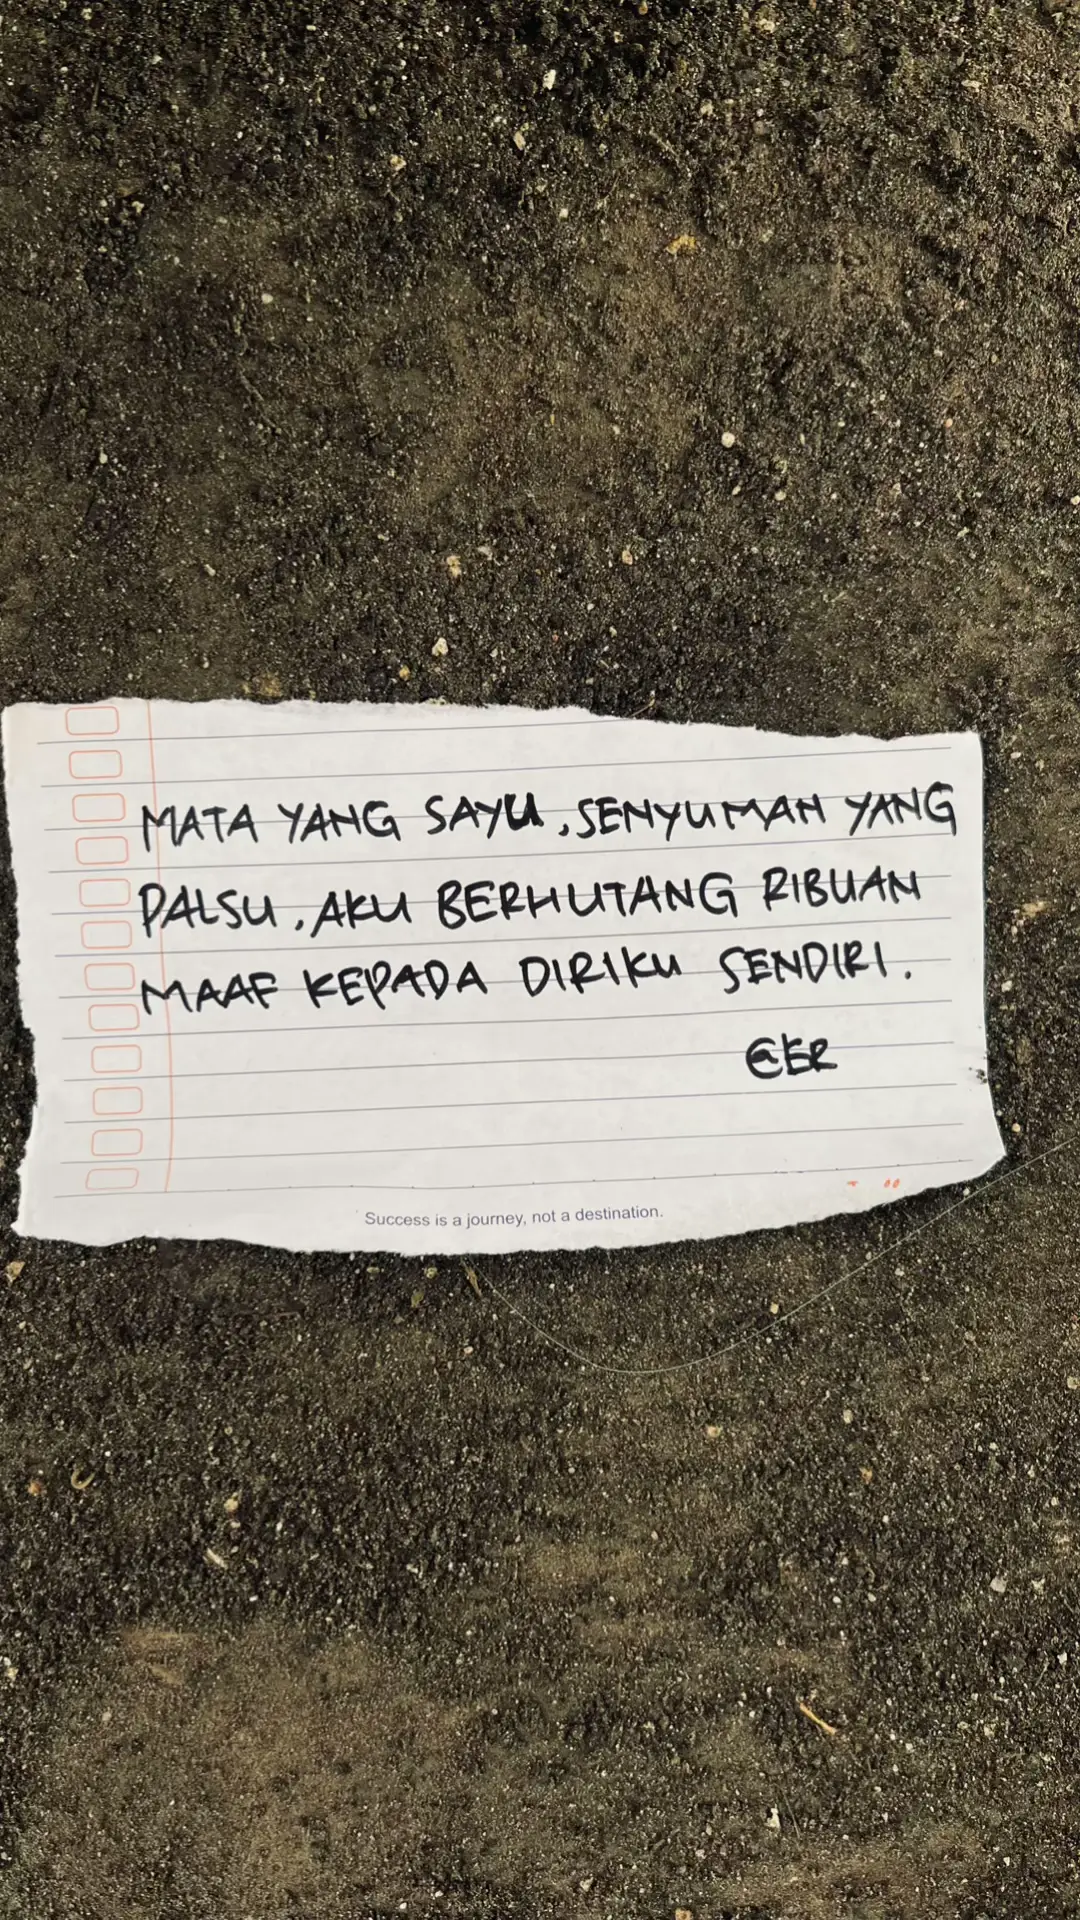 MATA YANG SAYU, SENYUMAN YANG
PALSU, AKU BERHUTANG RIBUAN
MAAF KEPADA DIRIKU SENDIRI.
Success is a journey, not a destination.